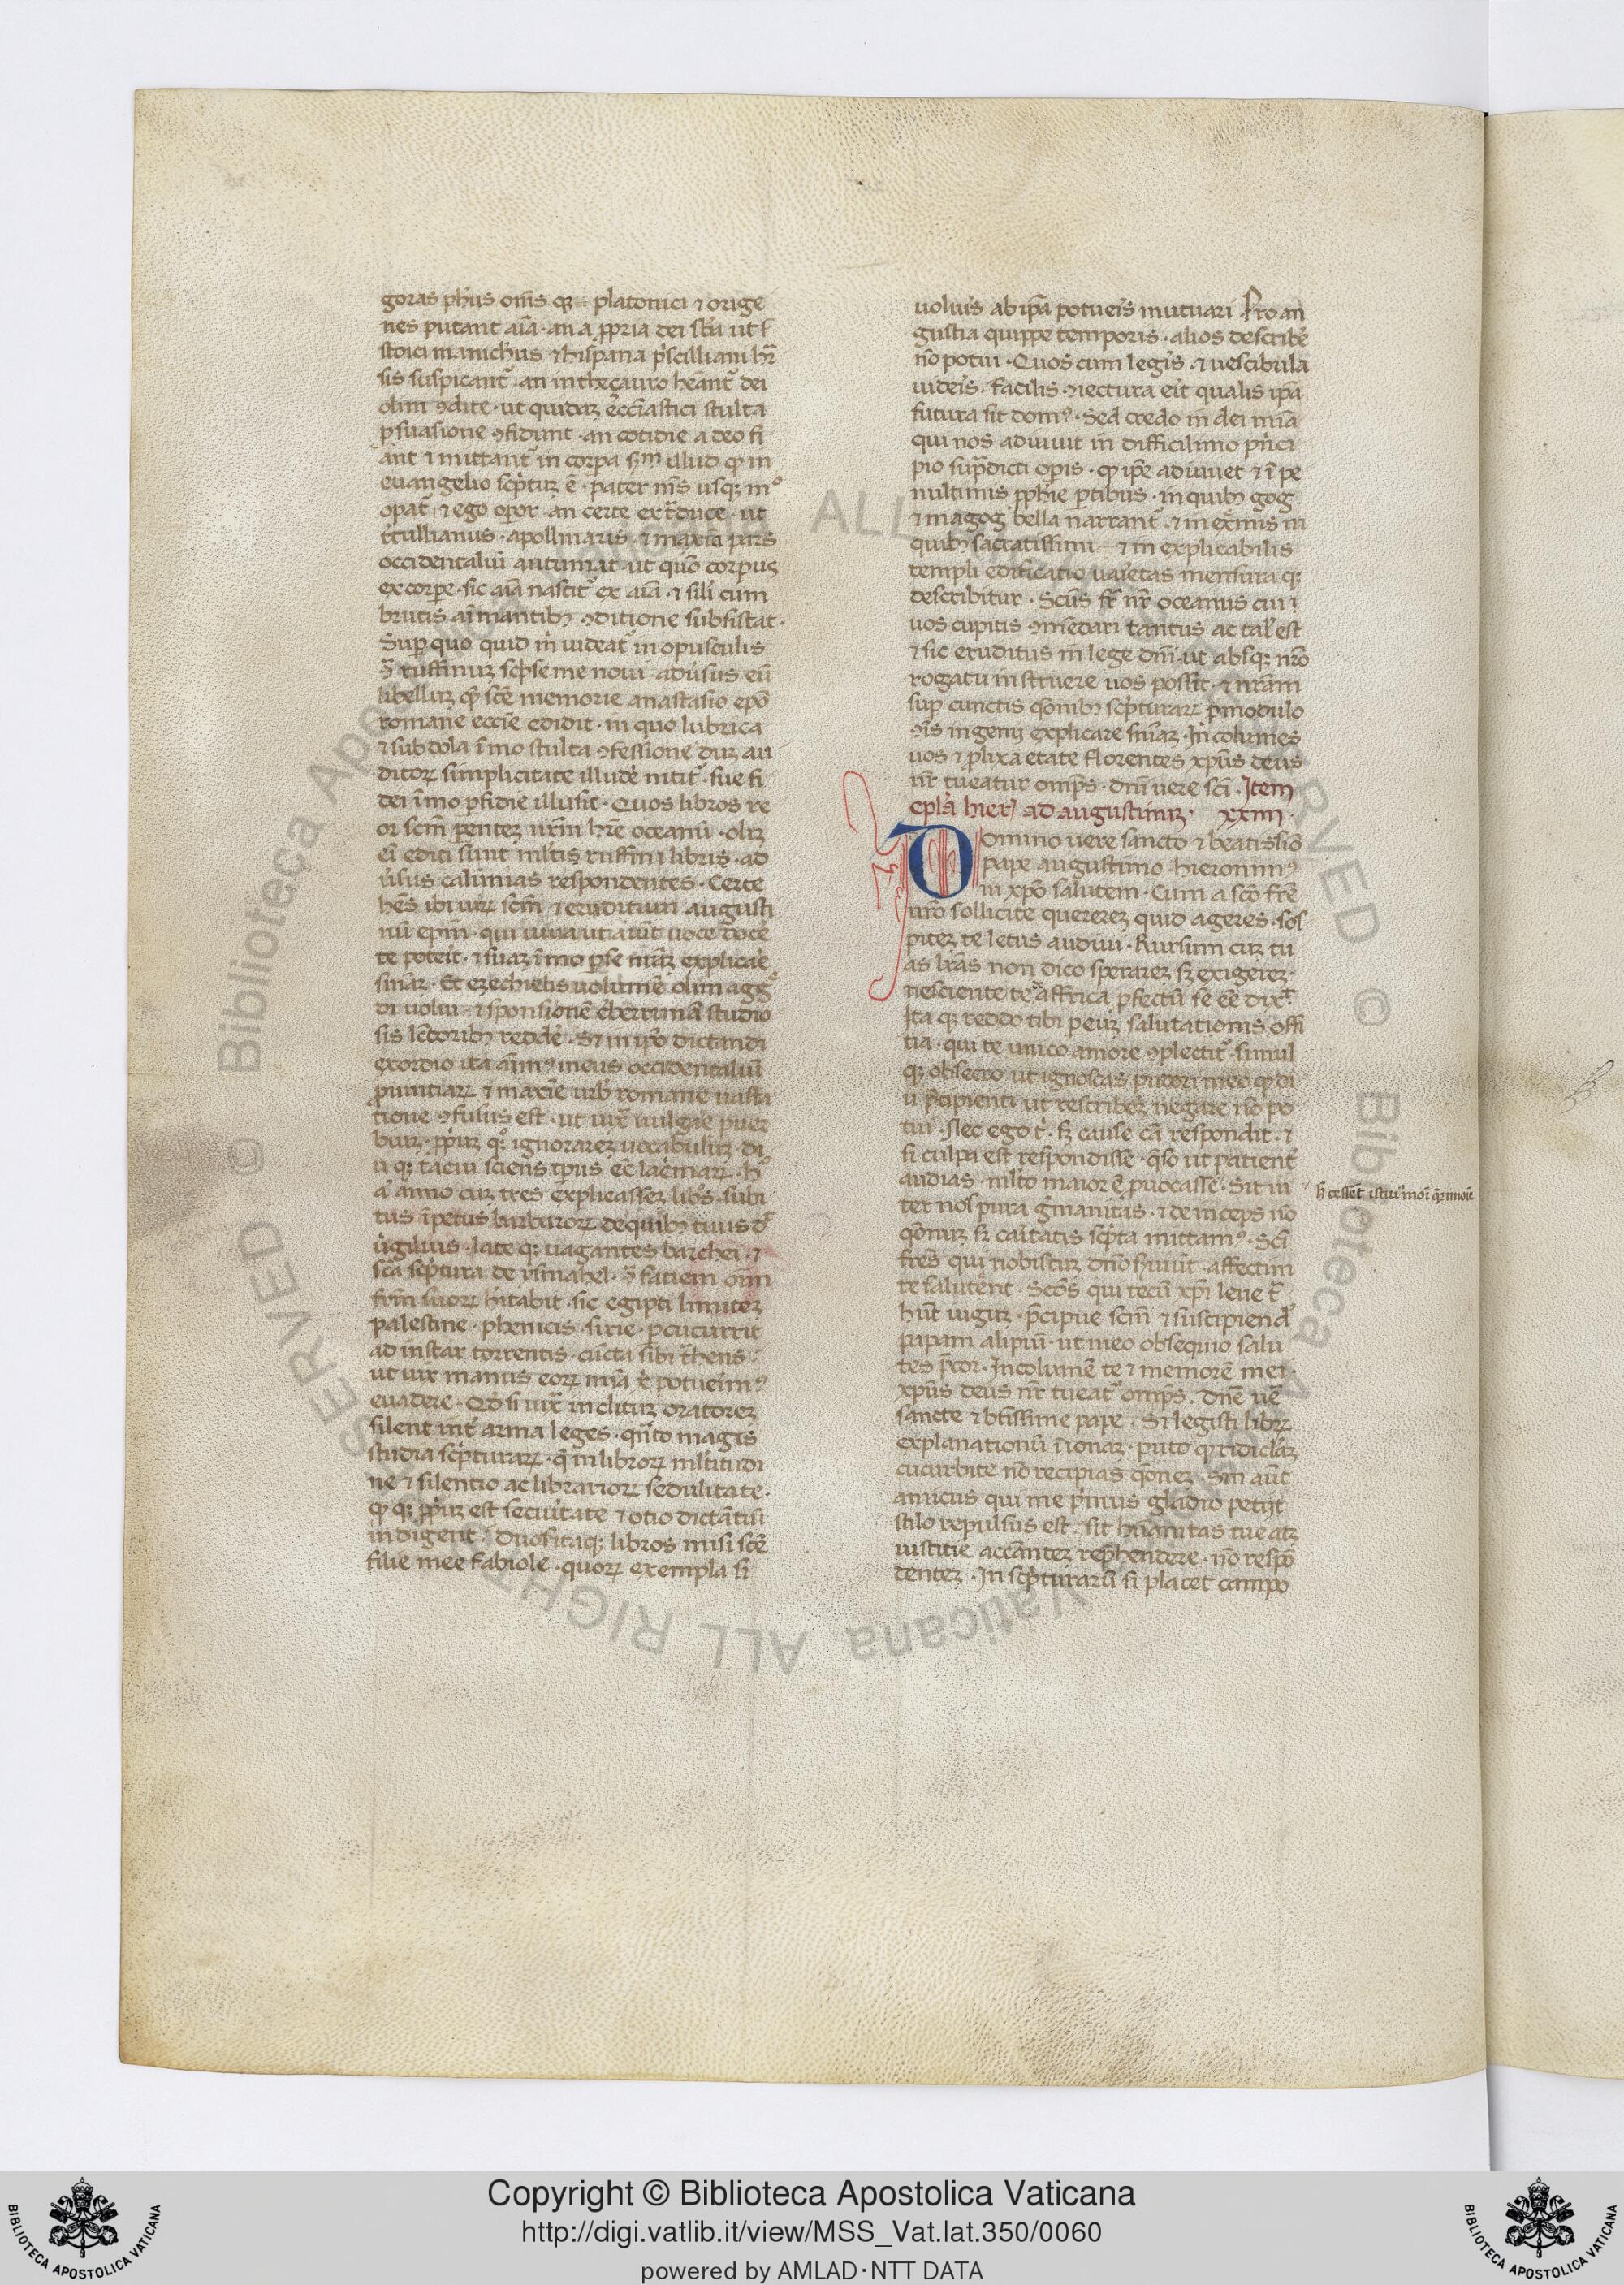 goras phus oms qꝫ platonici ⁊ orige
nes putant aiā · an a ꝓpria dei sbā ut
stoici manicheus ⁊ hispana pͥscilliani hr̄
sis suspicantᷣ · an in theçauro heāntᷣ dei
olim ꝯdite · ut quidaꝫ eccl̄iastici stulta
ꝑsuasione ꝯfidunt · an cotidie a deo fi
ant ⁊ mittantᷣ in corpa sm̄ illud qđ in
euangelio scͥptuꝫ ē · pater m̄s usqꝫ mō
opatᷣ · ⁊ ego oꝑor · an certe ex tͣduce · ut
tͥtullianus · apollinaris · ⁊ maxīa pars
occidentaliū autumat ut quō corpus
ex corpe · sic aīa nascitᷣ ex aīa · ⁊ sili cum
brutis aīmantibꝫ ꝯditione subsistat ·
Suꝑ quo quid mͥ uideatᷣ in opusculis
ɔ̄ ruffinuꝫ scͥpsisse me noui · aduͥsus eū
libelluꝫ qđ scē memorie anastasio epō
romane eccl̄ie edidit · in quo lubrica
⁊ subdola īmo stulta ꝯfessione duꝫ au
ditoꝝ simplicitate illudē nititᷣ · sue fi
dei īmo ꝑfidie illusit · Quos libros re
or scm̄ ꝑentez ur̄m hr̄e oceanū · oliꝫ
eī editi sunt ml̄tis ruffini libris · ad
uͥsus calūnias respondentes · Certe
hēs ibi uiꝝ scm̄ ⁊ eruditum augusti
nū epm̄ · qui uiua ut aiūt uoce docē
te poteͥt · ⁊ suaꝫ īmo ꝑ se nr̄aꝫ explicaͥe
sn̄iaꝫ · Et ezechielis uolumē olim aggͦ
di uolui · ⁊ sponsionē cͥberrimā studio
sis lc̄toribꝫ reddeͥ · Sꝫ in ip̄o dictandi
exordio ita aīmꝰ meus occidentaliū
ꝓuintiaꝝ ⁊ maxīe urbͥ romane uasta
tione ꝯfusus est · ut iux̄ uulgaͥe ꝓuer
biuꝫ · ꝓpͥuꝫ qͦqꝫ ignorareꝫ uocabuluꝫ · di
u qꝫ tacui sciens tp̄us eē lacͥmaꝝ · hͦ
aͧ anno cuꝫ tres explicasseꝫ libͦs · subi
tus īpetus barbaroꝝ de quibꝫ tuus dr̄
uͥgilius · late qꝫ uagantes barchei · ⁊
sc̄a scͥptura de ysmahel · ɔ̄ faciem oīm
frm̄ suoꝝ hītabit · sic egipti limiteꝫ
palestine · phenicis · sirie · ꝑcucurrit
ad instar torrentis · cūcta sibi tͣhens ·
ut uix manus eoꝝ mīa xͥ potueimꝰ
euadere · Qđ si iux̄ inclituꝫ oratoreꝫ
silent int̄ arma leges · qn̄to magis
studia scͥpturaꝝ · q̄ in libroꝝ ml̄titudi
ne ⁊ silentio ac librarioꝝ sedulitate ·
qđ qꝫ ꝓpͥuꝫ est securitate ⁊ otio dictātiū
indigent · Duos itaqꝫ libros misi scē
filie mee fabiole · quoꝝ exempla si
uoluis ab ip̄a potueis mutuari · Pro an
gustia quippe temporis · alios describē
nō potui · Quos cum legis · ⁊ uestibula
uideis · facilis ꝯiectura eit qualis ip̄a
futura sit domꝰ · Sed credo in dei mīa
qui nos adiuuit in difficilimo pͥnci
pio supͣdicti opis · qđ ip̄e adiuuet ⁊ ī pe
nultimis ꝓphīe ꝑtibus · in quibꝫ gog
⁊ magog bella narrantᷣ · ⁊ in ext̄mis in
quibꝫ sacratissimi ⁊ inexplicabilis
templi edificatio uarͥetas mensura qꝫ
describitur · Scūs fr̄ nr̄ oceanus cui ⁊
uos cupitis ꝯmēdari tantus ac talͥ est
⁊ sic eruditus in lege dnī · ut absqꝫ nr̄o
rogatu instruere uos possit · ⁊ nr̄am
suꝑ cunctis qōnibꝫ scͥpturaꝝ ꝑ modulo
ꝯis ingenij explicare sn̄iaꝫ · Incolumes
uos ⁊ ꝓlixa etate florentes xp̄us deus
nr̄ tueatur omp̄s · dn̄i uere scī · Item
epl̄a hier̄ ad augustinuꝫ · xxiiij ·
Domino uere sancto ⁊ beatissīo
pape augustino hieronimꝰ
in xpō salutem · Cum a scō fr̄e
nr̄o sollicite quererez quid ageres · sos
pitez te letus audiui · Rursum cuꝫ tu
as lr̄as non dico sperareꝫ sꝫ exigereꝫ ·
nesciente te affrica ꝓfectū se eē dixͥt ·
Ita qꝫ reddo tibi ꝑ euꝫ salutationis offi
tia · qui te unico amore ꝯplectitᷣ · simul
qꝫ obsecro ut ignoscas pudori meo qđ di
u pͥcipienti ut rescribereꝫ negare nō po
tui · Nec ego tͥ · sꝫ cause cā respondit · ⁊
si culpa est respondisse · q̄so ut patient̄
audias · ml̄to maior ē ꝓuocasse · Sit in
sꝫ cessent istiusmōi qͥrimonie
ter nos pura gͥmanitas · ⁊ deinceps nō
qōnuꝫ sꝫ caͥitatis scͥpta mittamꝰ · Scī
fr̄es qui nobiscuꝫ dnō ẜuiūt · affectim
te salutent · Scōs qui tecū xp̄i leue tͣ
hūt iuguꝫ · pͥcipue scm̄ ⁊ suscipiend̄
papam alipiū · ut meo obsequio salu
tes pͥcor · Incolumē te ⁊ memorē mei ·
xp̄us deus nr̄ tueatᷣ omp̄s · dn̄e ue
sancte ⁊ btīssime pape · Si legisti libꝝ
explanationū ī ionaꝫ · puto qđ ridiclāꝫ
cucurbite nō recipias qōneꝫ · Sin aūt
amicus qui me pͥmus gladio petijt
stilo repulsus est · sit hūanitas tue atꝫ
iustitie accātez rep̄hendere · nō respō
dentez · In scͥpturarū si placet campo
Copyright © Biblioteca Apostolica Vaticana
http://digi.vatlib.it/view/MSS_Vat.lat.350/0060
powered by AMLAD·NTT DATA